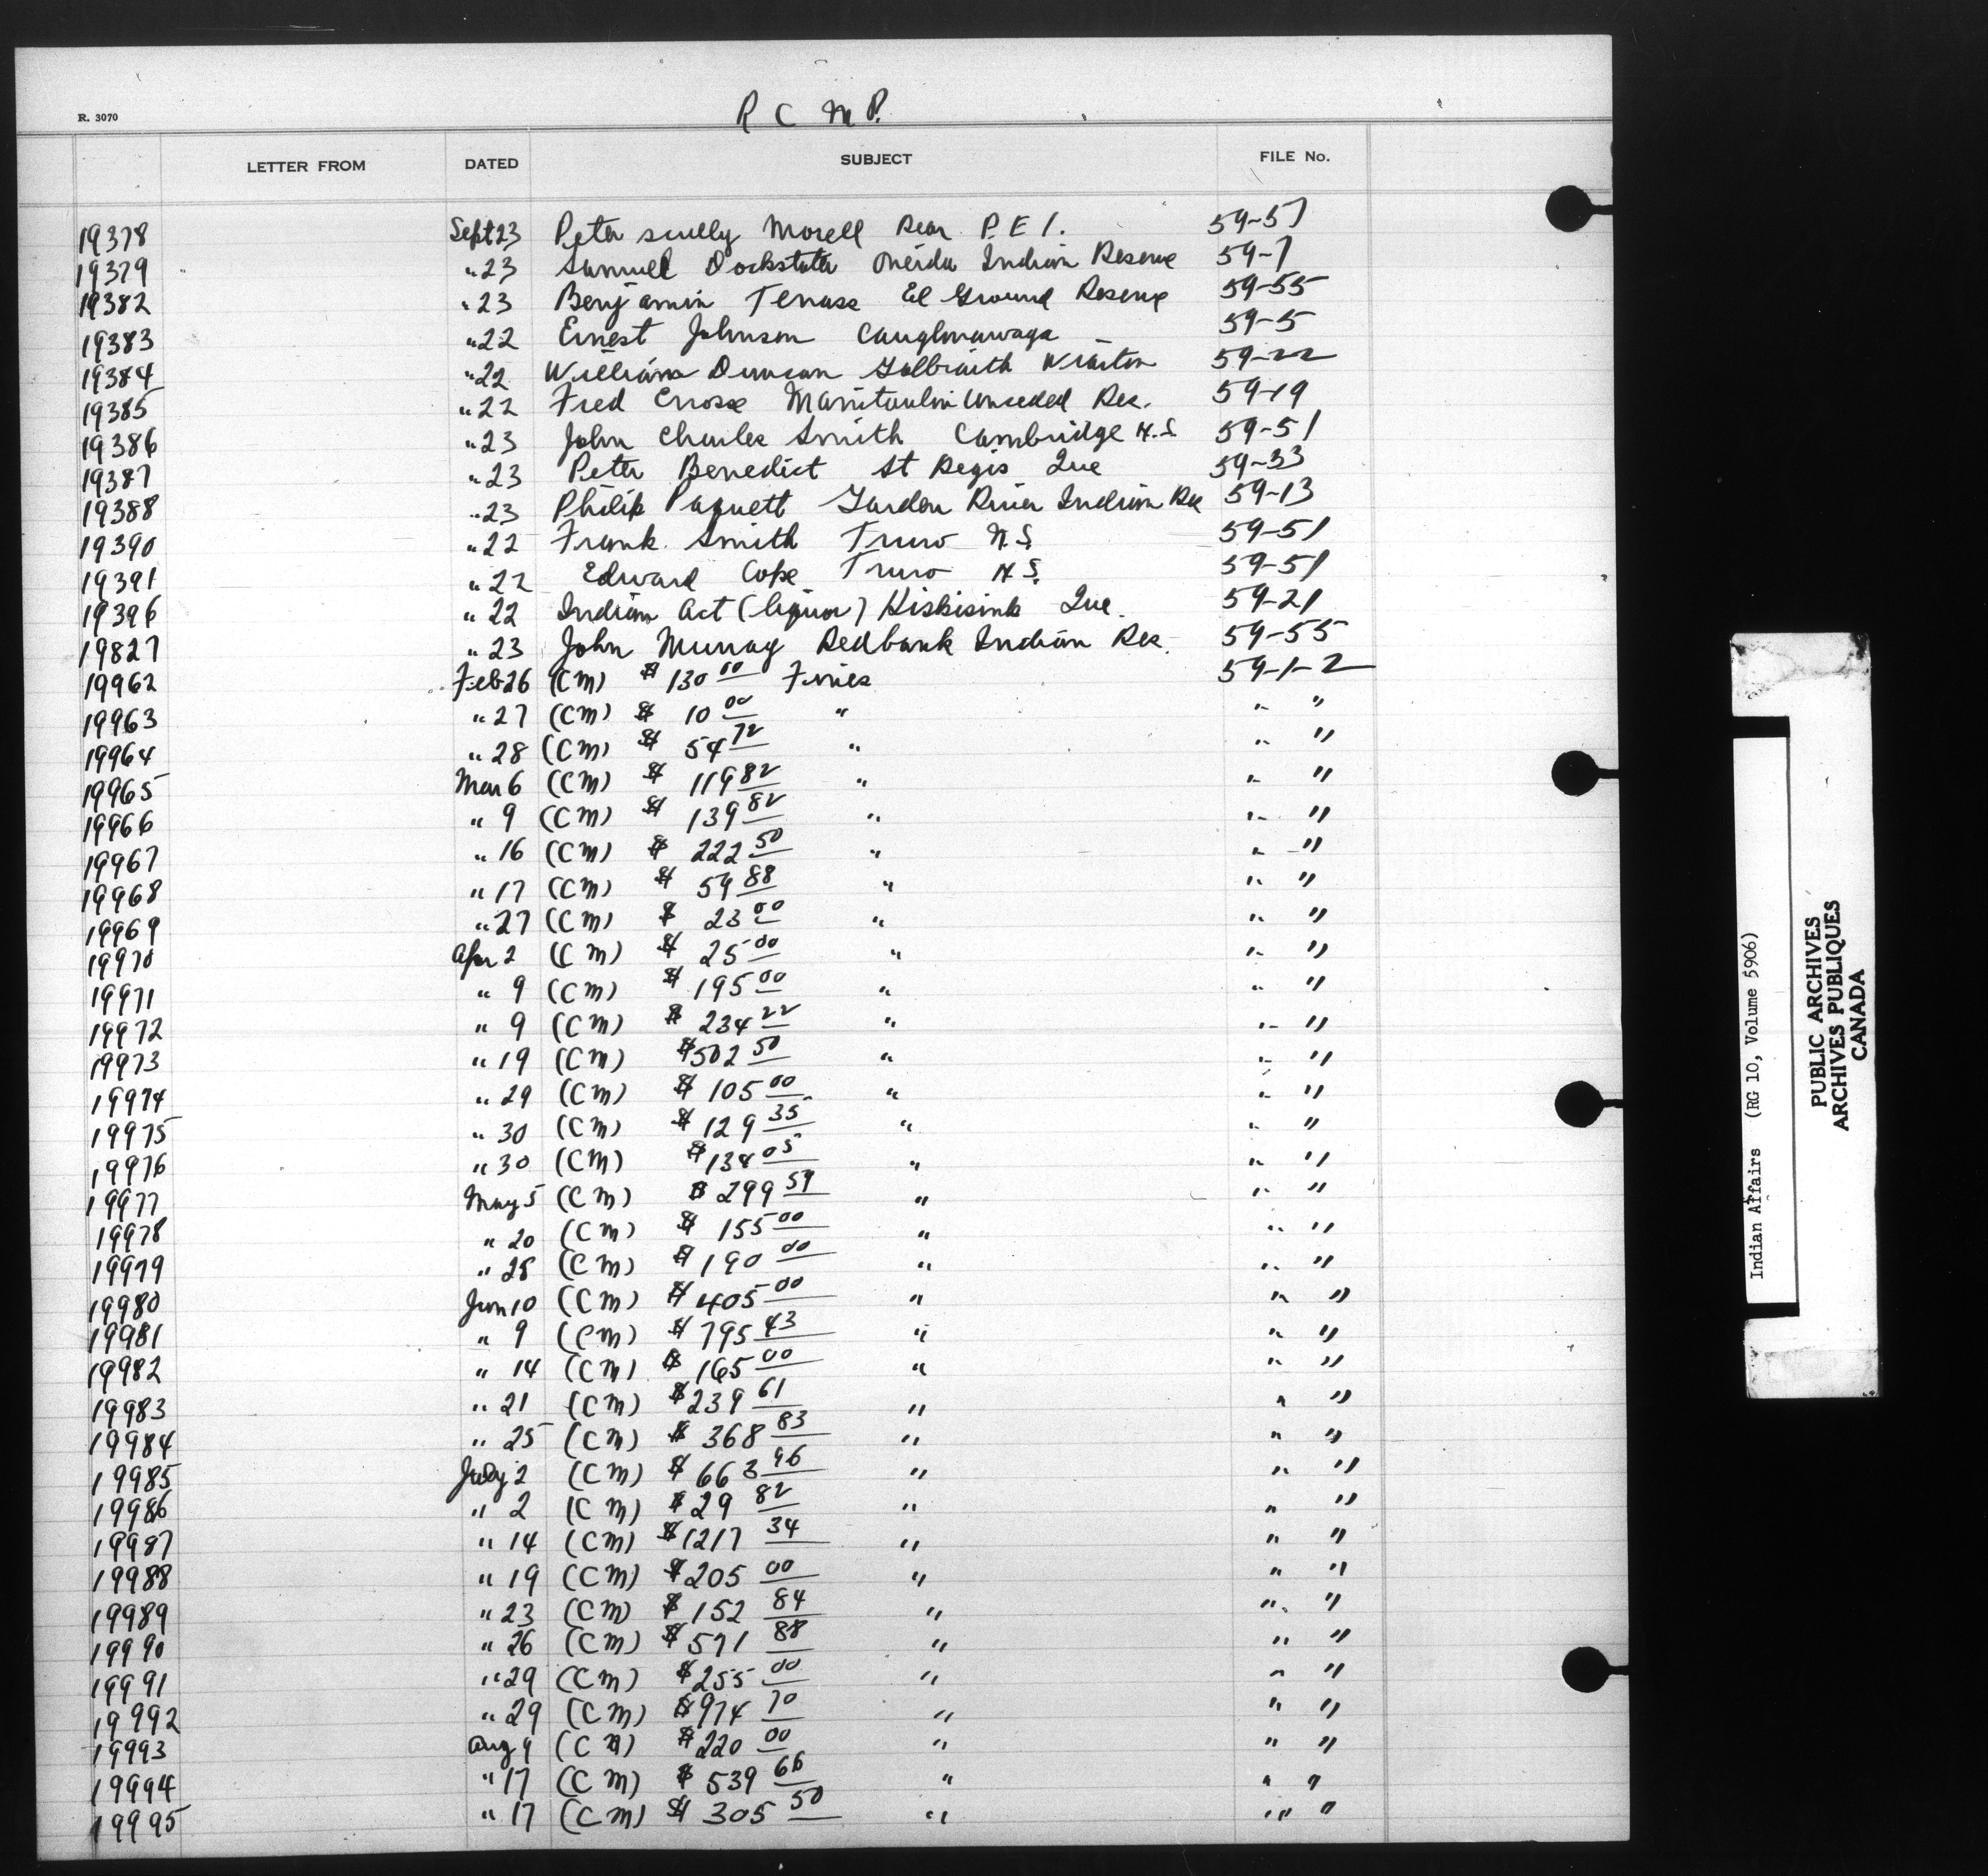 R. 3070
R C M P.
LETTER FROM DATED SUBJECT FILE No.
19378 Sept 23 Peter Scully Morell Rear P.E.I. 59-51
19379 " 23 Samuel Dockstater Oneida Indian Reserve 59-7
19382 " 23 Benjamin Tenass Eel Ground Reserve 59-55
19383 " 22 Ernest Johnson Caughnawaga 59-5
19384 " 22 William Duncan Galbraith Wiarton 59-22
19385 " 22 Fred Crosse Manitoulin Unceded Res. 59-19
19386 " 23 John Charles Smith Cambridge N.S. 59-51
19387 " 23 Peter Benedict St Regis Que 59-33
19388 " 23 Philip Paquett Garden River Indian Res 59-13
19390 " 22 Frank Smith Truro N.S. 59-51
19391 " 22 Edward Cope Truro N.S. 59-51
19396 " 22 Indian Act (liquor) Kiskisink Que. 59-21
19827 " 23 John Murray Redbank Indian Res. 59-55
19962 Feb 26 (CM) $ 130 00 Fines 59-1-2
19963 " 27 (CM) $ 10 00 " " "
19964 " 28 (CM) $ 54 72 " " "
19965 Mar 6 (CM) $ 119 82 " " "
19966 " 9 (CM) $ 139 82 " " "
19967 " 16 (CM) $ 222 50 " " "
19968 " 17 (CM) $ 59 88 " " "
19969 " 27 (CM) $ 23 00 " " "
19970 Apr 2 (CM) $ 25 00 " " "
19971 " 9 (CM) $ 195 00 " " "
19972 " 9 (CM) $ 234 22 " " "
19973 " 19 (CM) $ 502 50 " " "
19974 " 29 (CM) $ 105 00 " " "
19975 " 30 (CM) $ 129 35 " " "
19976 " 30 (CM) $ 134 05 " " "
19977 May 5 (CM) $ 299 59 " " "
19978 " 20 (CM) $ 155 00 " " "
19979 " 28 (CM) $ 190 00 " " "
19980 Jun 10 (CM) $ 405 00 " " "
19981 " 9 (CM) $ 795 43 " " "
19982 " 14 (CM) $ 165 00 " " "
19983 " 21 (CM) $ 239 61 " " "
19984 " 25 (CM) $ 368 83 " " "
19985 July 2 (CM) $ 663 96 " " "
19986 " 2 (CM) $ 29 82 " " "
19987 " 14 (CM) $ 1217 34 " " "
19988 " 19 (CM) $ 205 00 " " "
19989 " 23 (CM) $ 152 84 " " "
19990 " 26 (CM) $ 571 88 " " "
19991 " 29 (CM) $ 255 00 " " "
19992 " 29 (CM) $ 974 70 " " "
19993 Aug 9 (CM) $ 220 00 " " "
19994 " 17 (CM) $ 539 66 " " "
19995 " 17 (CM) $ 305 50 " " "
Indian Affairs (RG 10, Volume 5906)
PUBLIC ARCHIVES
ARCHIVES PUBLIQUES
CANADA